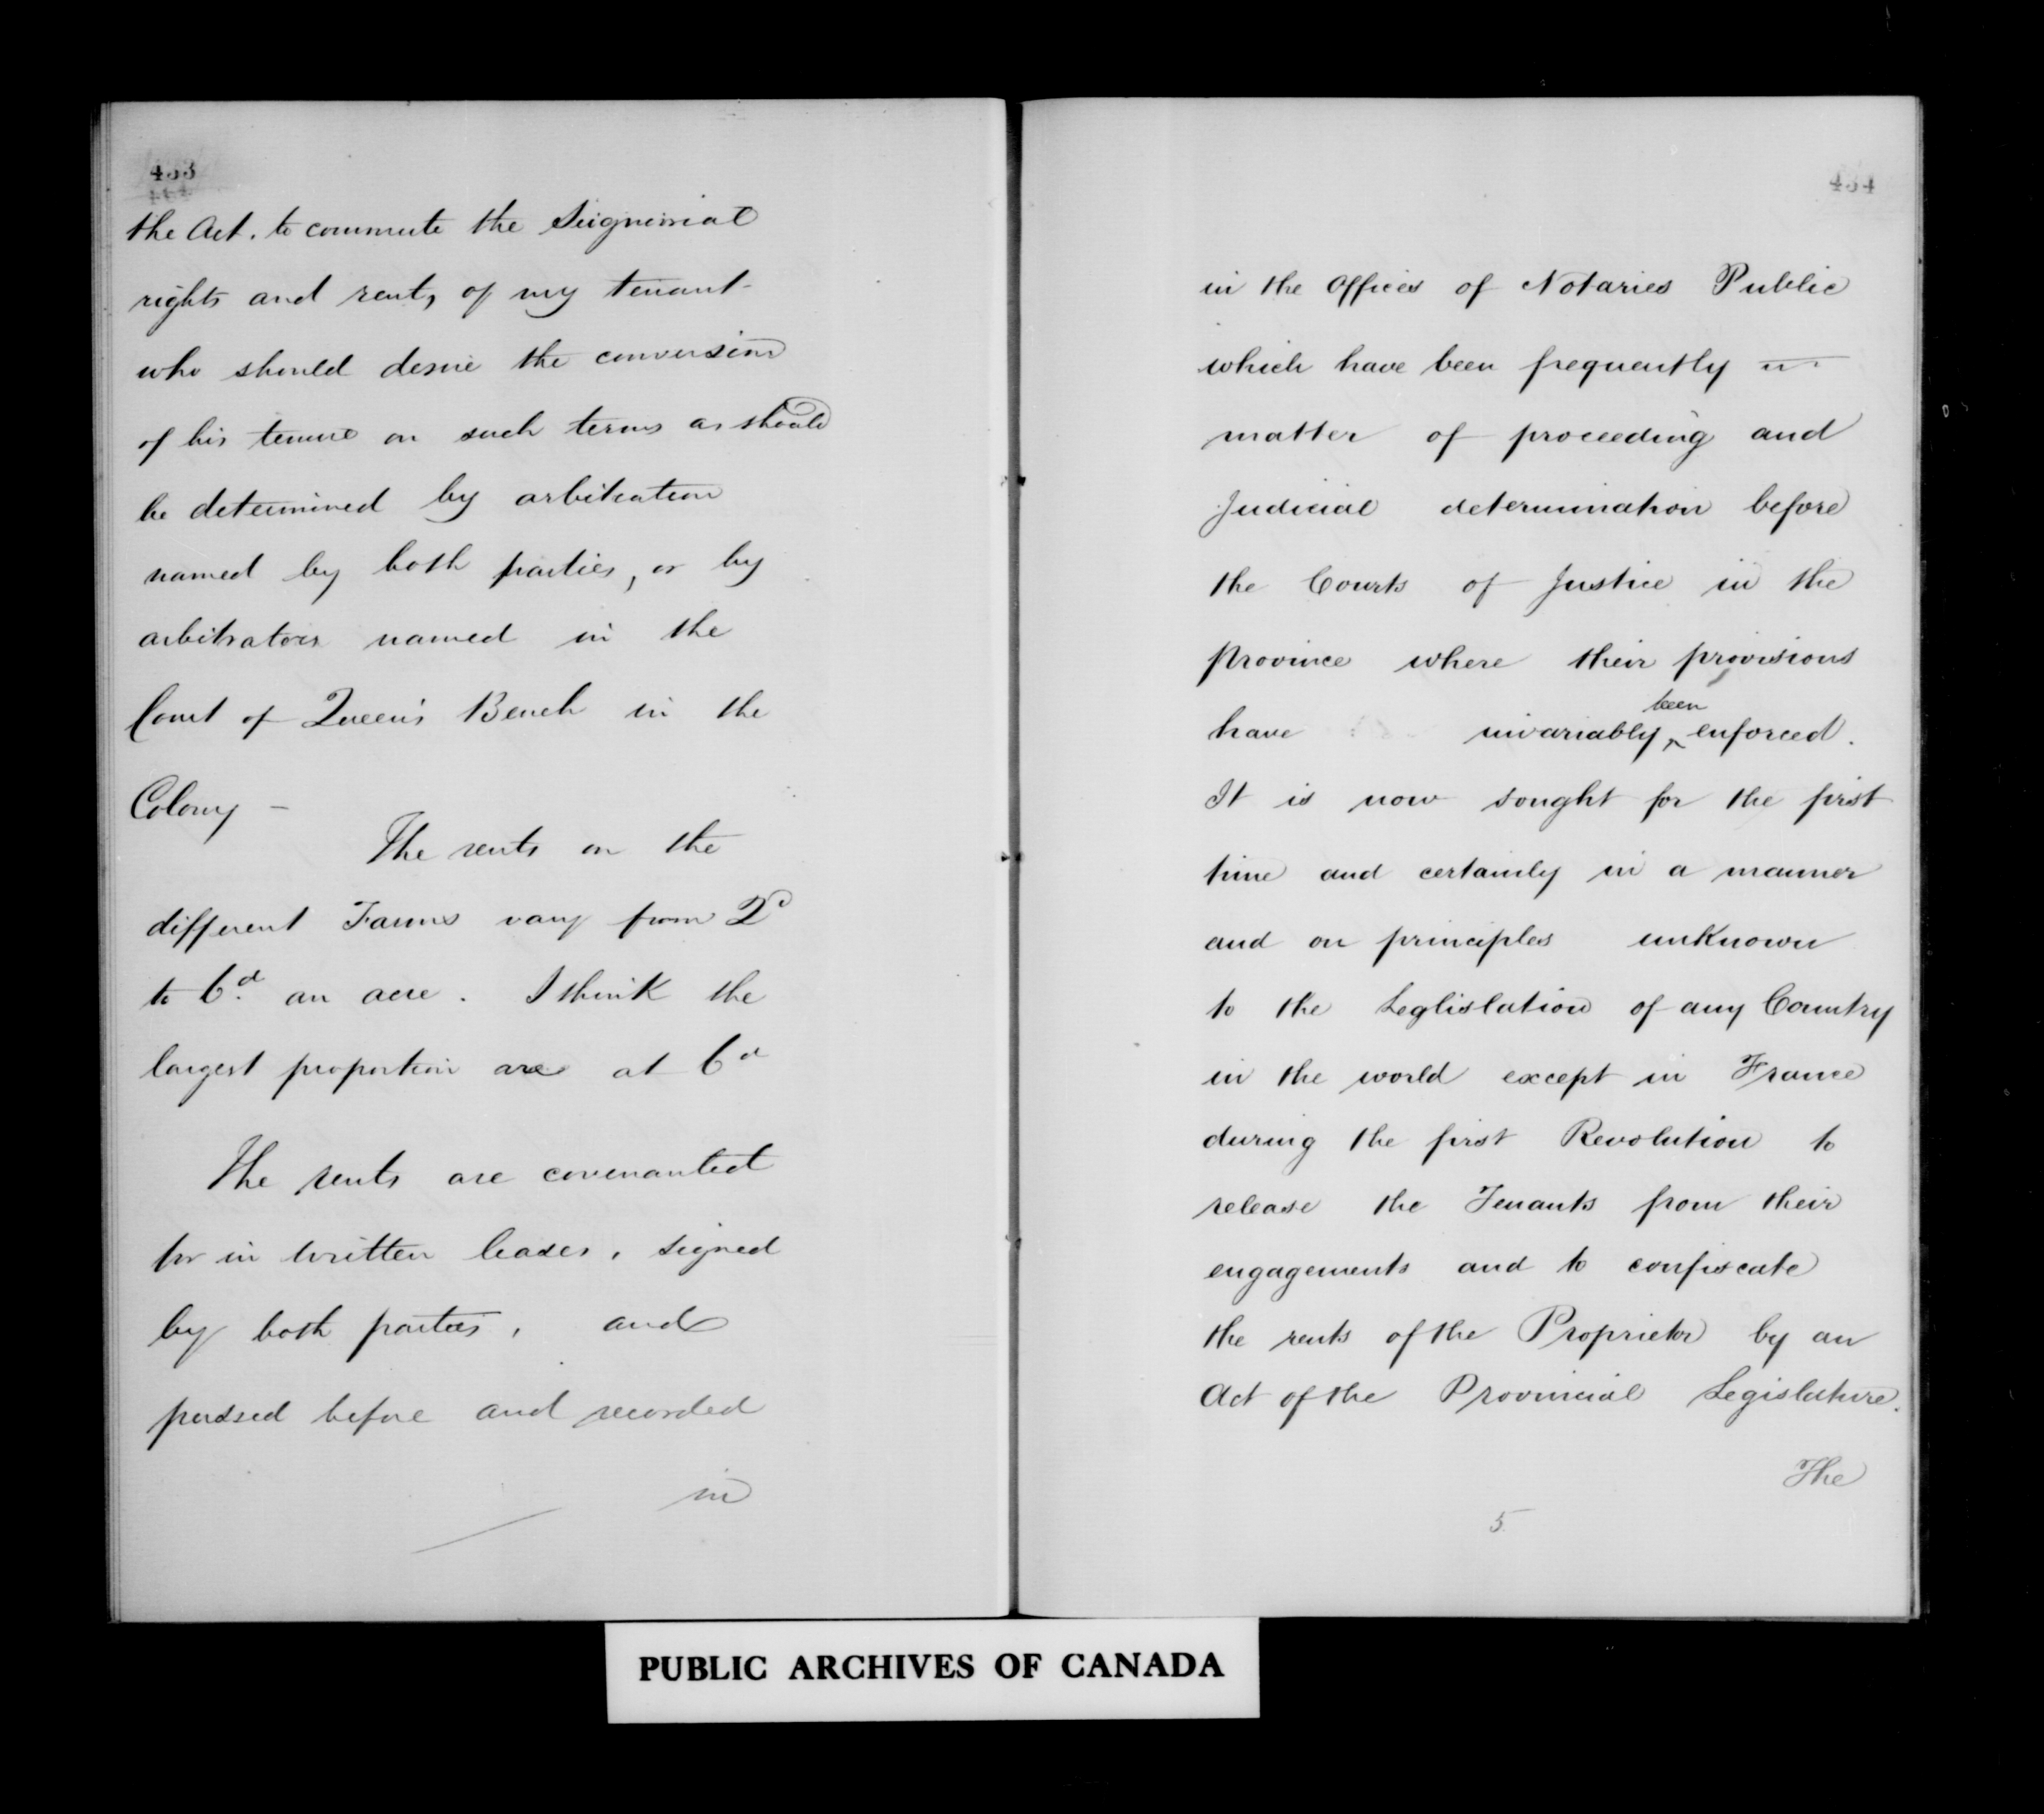 433
the Act. to commute the Seigniorial
rights and rents of my tenant
who should desire the conversion
of his tenure on such terms as should
be determined by arbitration
named by both parties, or by
arbitrators named in the
Court of Queen's Bench in the
Colony –
The rents on the
different Farms vary from 2d
to 6d. an acre. I think the
largest proportion are at 6d
The rents are covenanted
for in written leases, signed
by both parties, and
passed before and recorded
in
434
in the Offices of Notaries Public
which have been frequently
matter of proceeding and
Judicial determination before
the Courts of Justice in the
province where their provisions
have invariably been enforced.
It is now sought for the first
time and certainly in a manner
and on principles unknown
to the Leglislation of any Country
in the world except in France
during the first Revolution to
release the Tenants from their
engagements and to confiscate
the rents of the Proprietor by an
Act of the Provincial Legislature.
The
5
PUBLIC ARCHIVES OF CANADA